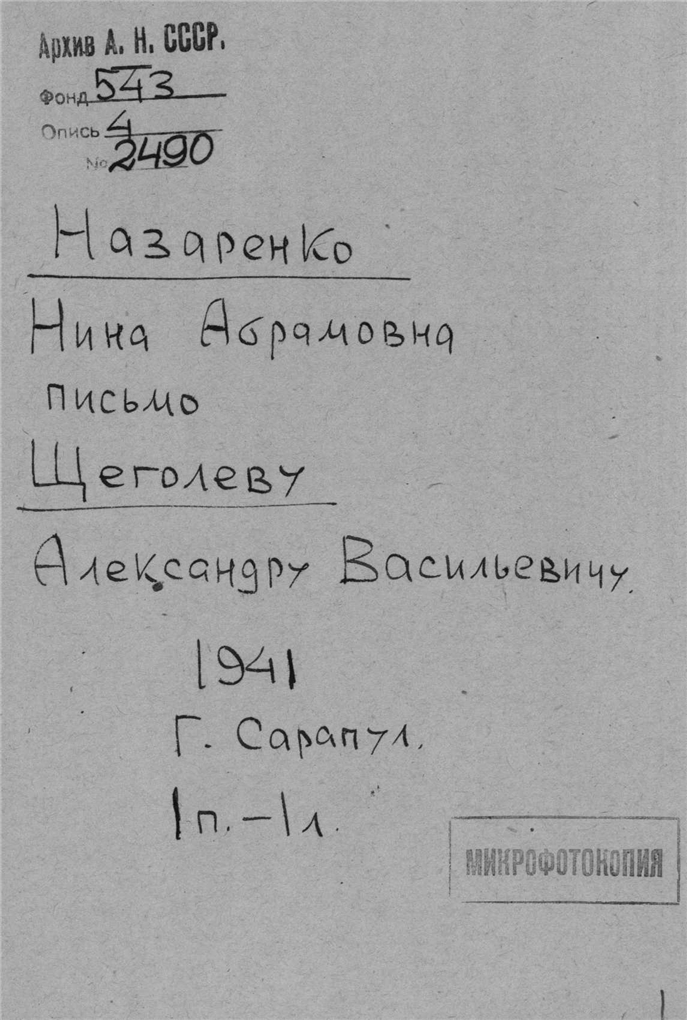 Архив А. Н. СССР.
Фонд 543
Опись 4
№ 2490
Назаренко
Нина Абрамовна
письмо
Щеголеву
Александру Васильевичу.
1941
Г. Сарапул.
1 п. – 1 л.
МИКРОФОТОКОПИЯ
1